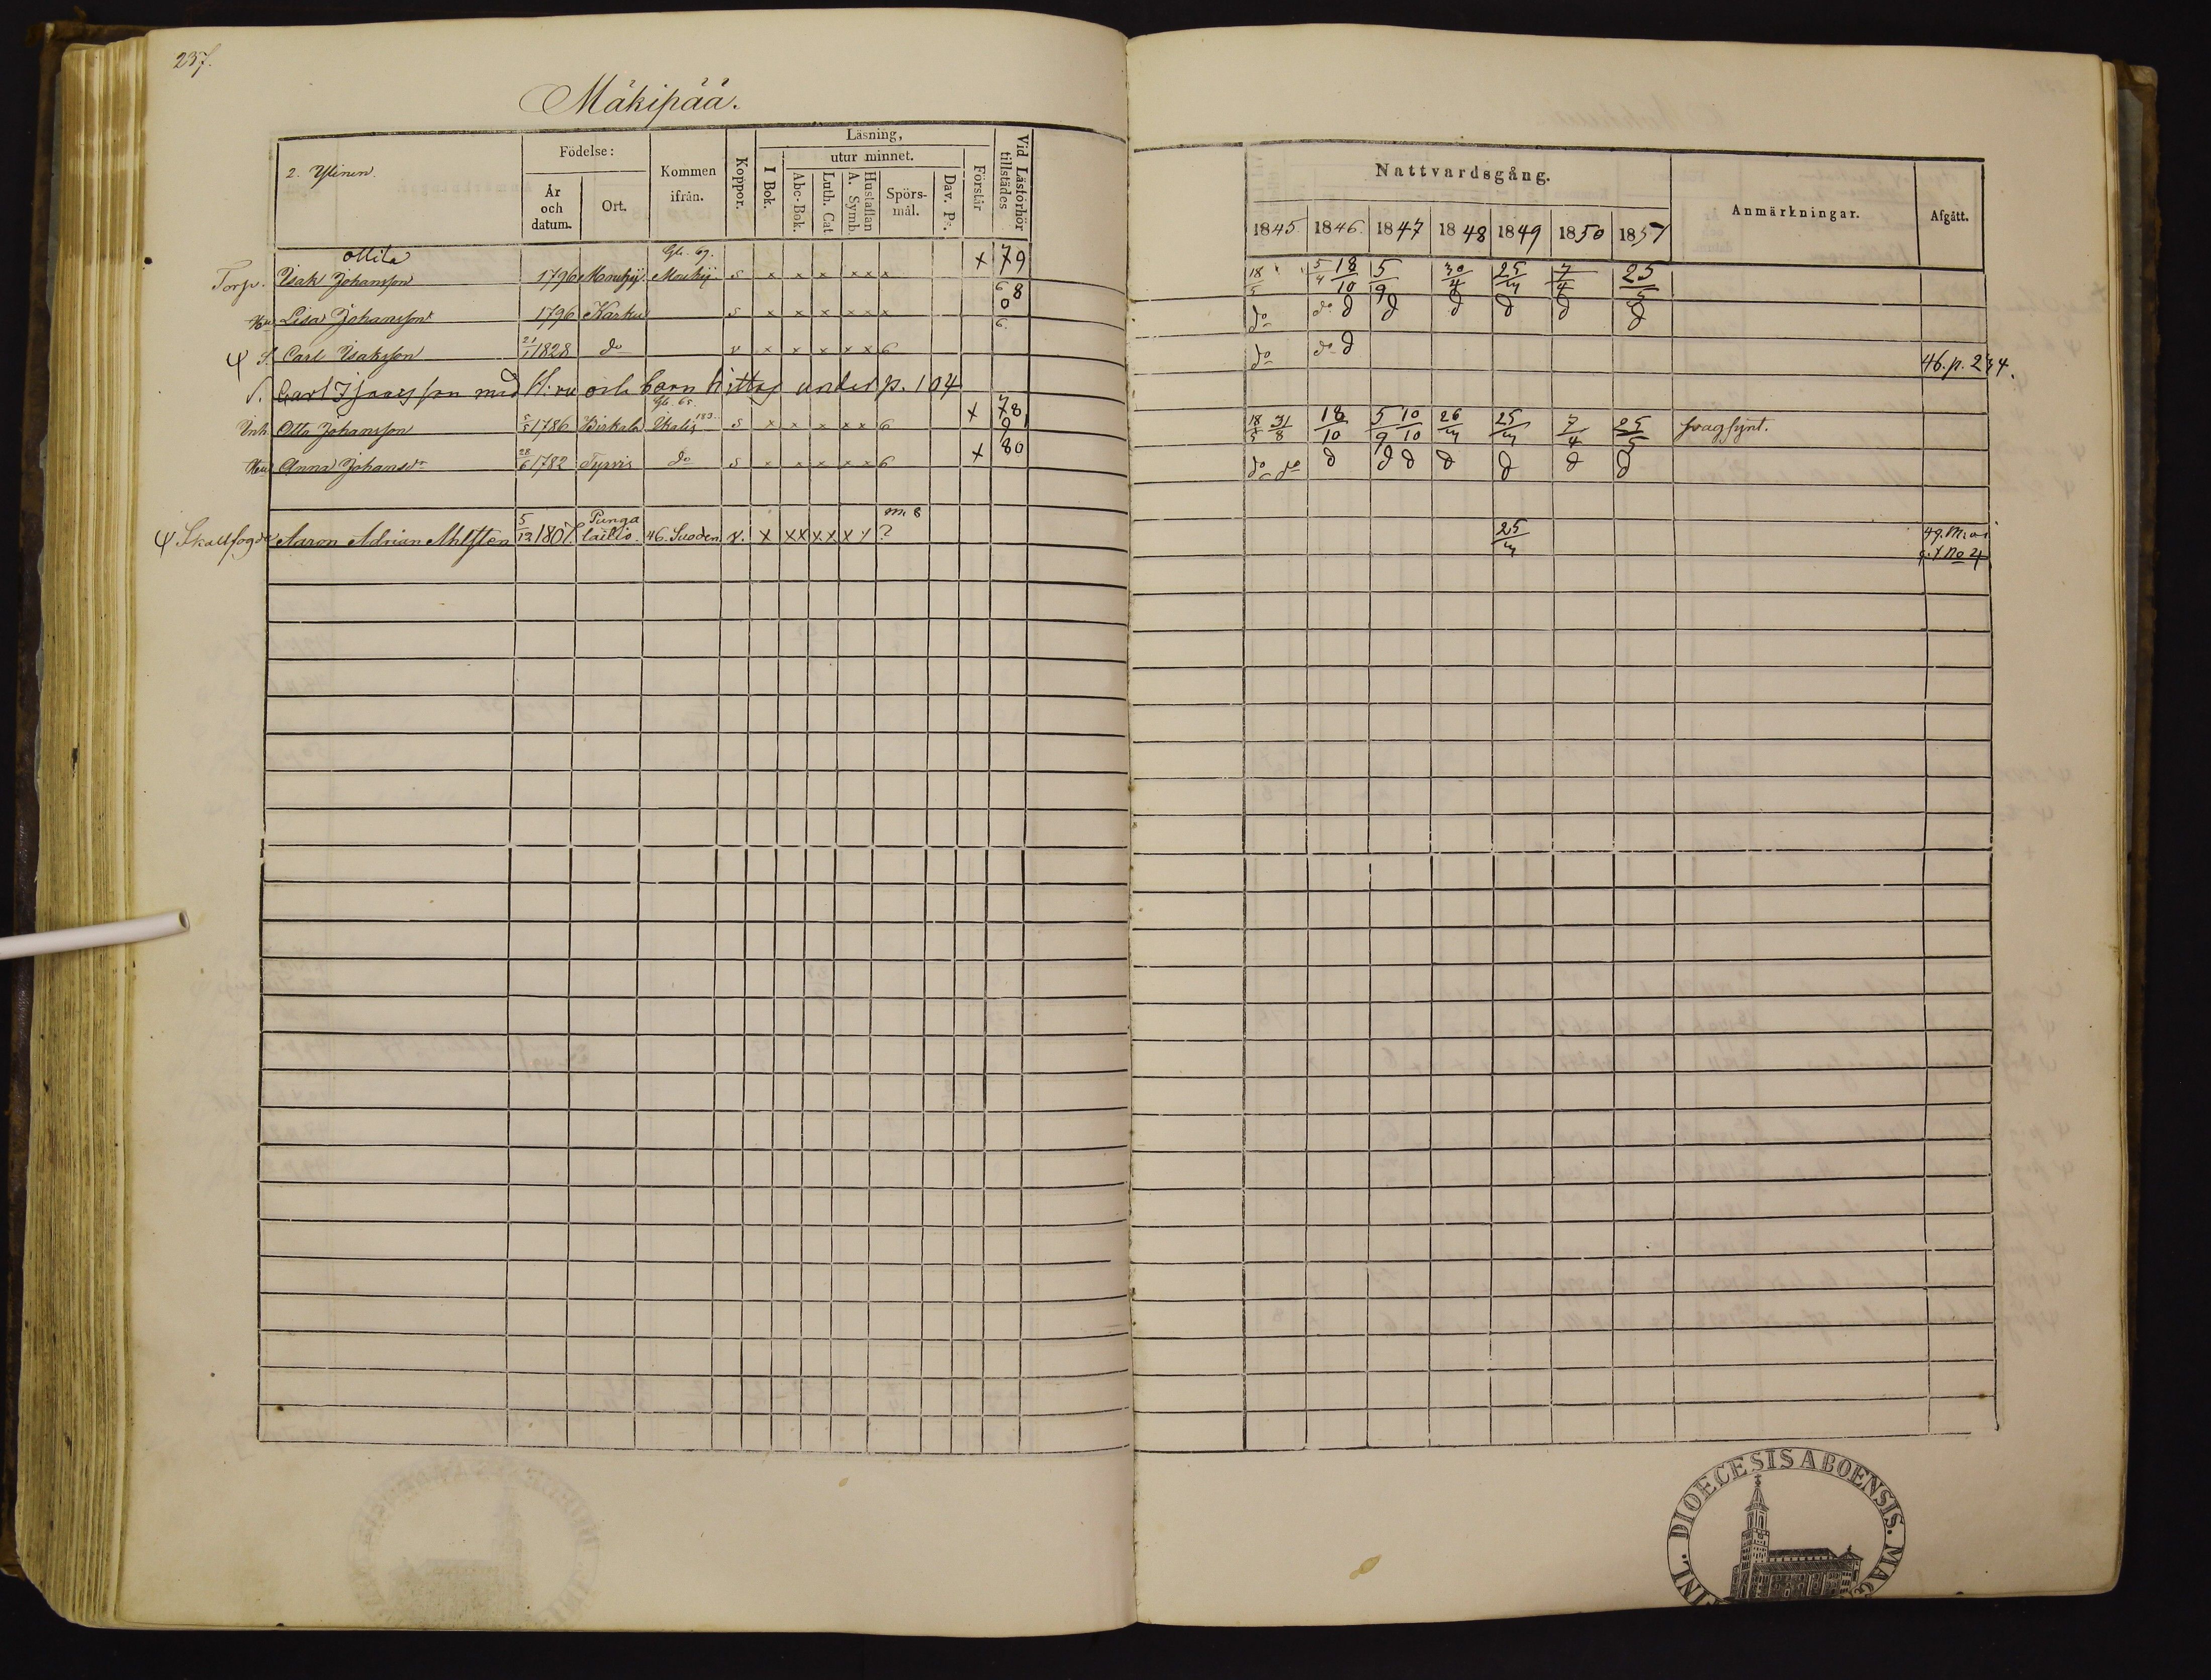 237.
Mäkipää.
2. Ylinen.
Födelse:
År och datum.
Ort.
Kommen ifrån.
Koppor.
Läsning,
I Bok.
utur minnet.
Abc-Bok.
Luth. Cat.
Hustaflan A. Symb.
Spörs-mål.
Dav. Ps.
Förstår
Vid Läsförhör tillstädes
Nattvardsgång.
1845 1846 1847 1848 1849 1850 1851
Anmärkningar.
Afgått.
Ottila
Torp. Isak Johansson 1796 Mouhij Gb. 69. Mouhij s x x x x x x x 79 18/5 5/4 18/10 5/9 30/4 25/4 7/4 25/5
Hu Lisa Johansdr 1796 Karku s x x x x x x 68 do do d d d d d d
S. Carl Isaksson 21/1 1828 do v x x x x x 6 do do d 46. p. 234.
S. Carl Isaacsson med h:ru och barn hittas under p. 104
Inh. Otto Johansson 5/5 1786 Birkala Gb. 65. Ikalis s x x x x x 6 x 78 18/5 31/8 18/10 5/9 10/10 26/4 25/4 7/4 25/5 svagsynt.
Hu Anna Johansdr 28/6 1782 Tyrvis do s x x x x x 6 x 80 do do d d d d d d d
Skallfogde Aaron Adrian Ahlsten 5/12 1807 Pungalaitio 46. Suoden v. x x x x x x x m. 8 ? 25/4 49. Maj
No 4
DIOECESIS ABOENSIS.